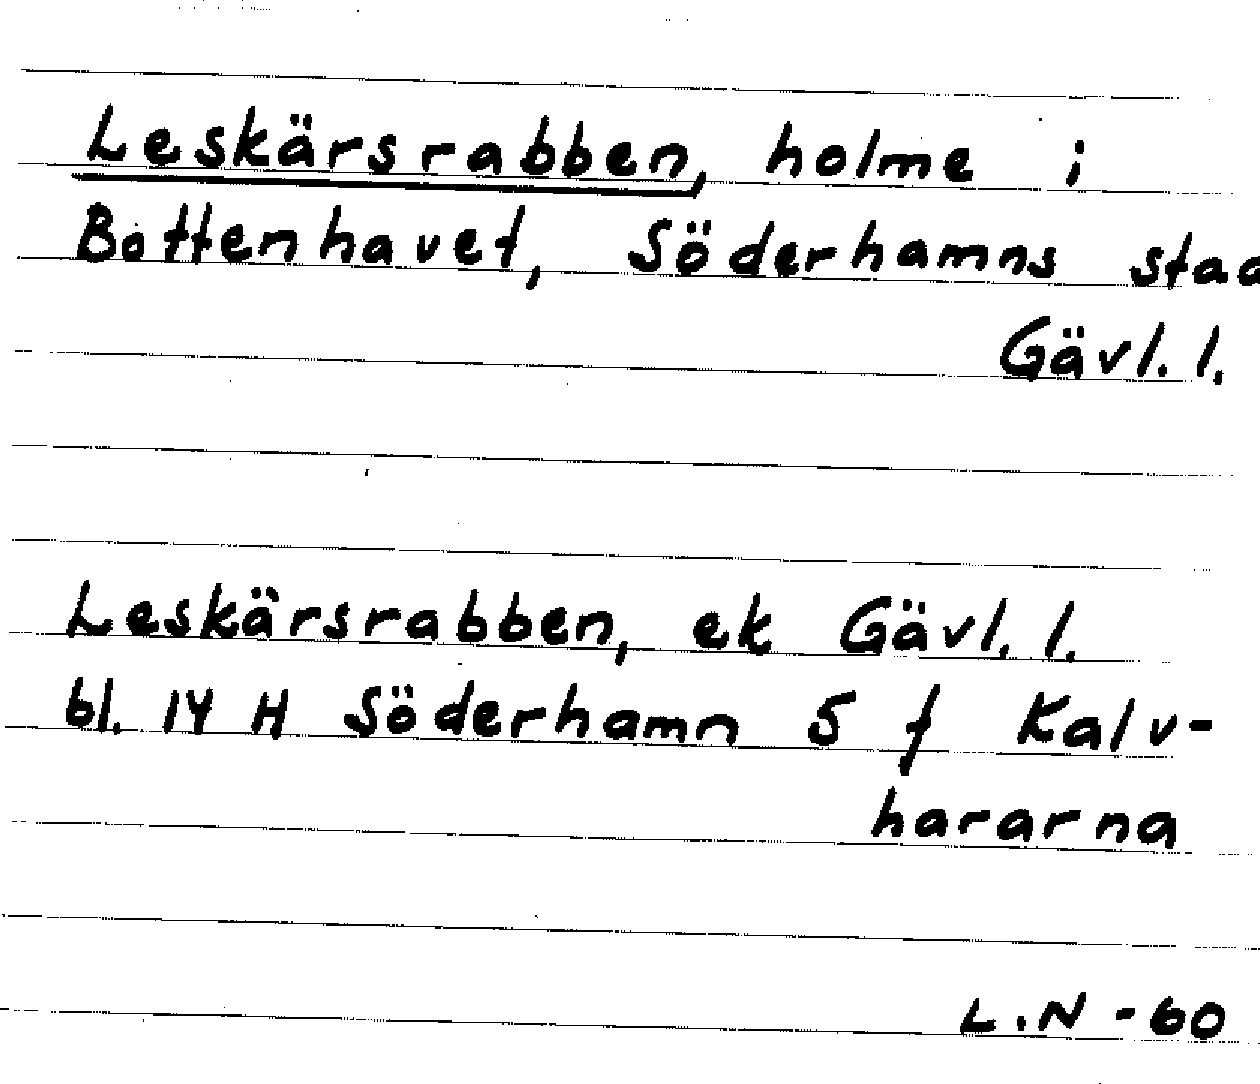 Leskärsrabben, holme i
Bottenhavet, Söderhamns stad
Gävl. l.
Leskärsrabben, ek Gävl. l.
bl. 14 H Söderhamn 5 f Kalv-
hararna
L.N -60